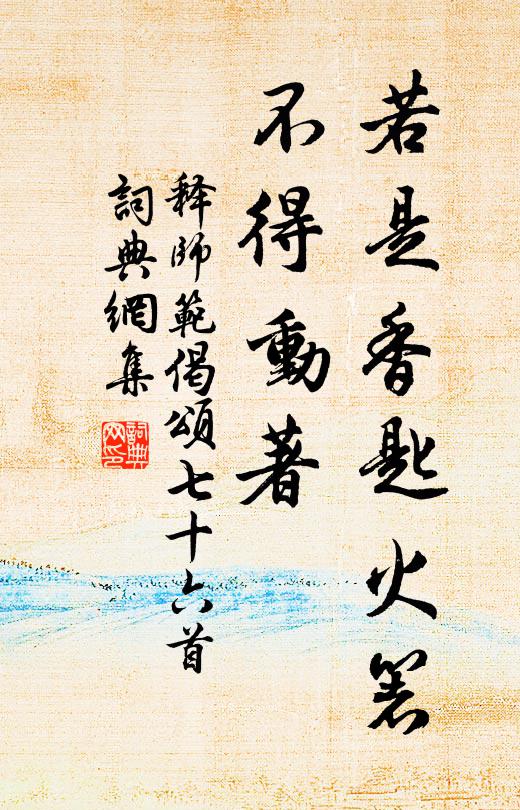 若是香匙火箸
不得動著
释師範偈頌七十六首
詞典網集
詞典
网印